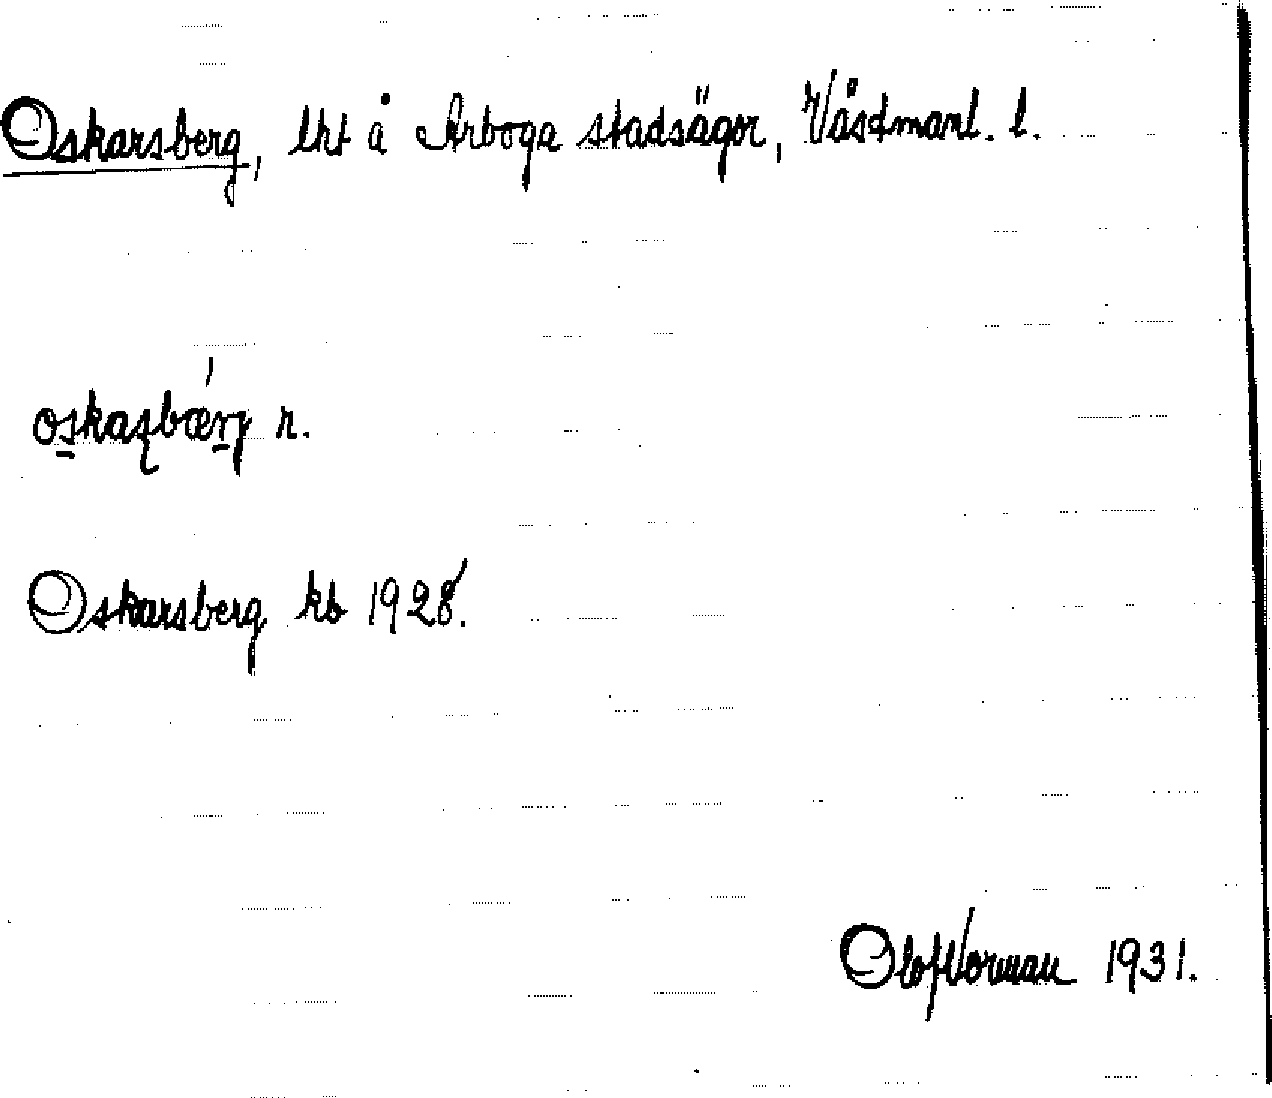 Oskarsberg, lht å Arboga stadsägor, Västmanl. l.
oskaʂbærj n.
Oskarsberg kb 1928.
Olof Norman 1931.